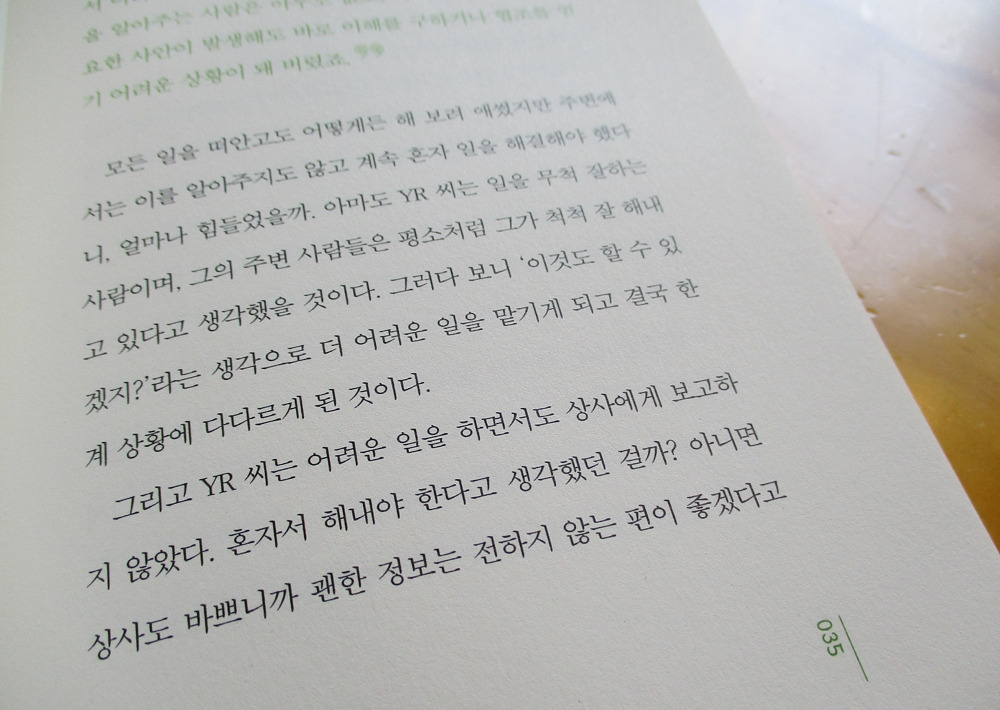 을 알아주는 사람은 아무도
요한 사안이 발생해도 바로 이해를 구하거나 협조를 얻
기 어려운 상황이 돼 버렸죠.
모든 일을 떠안고도 어떻게든 해 보려 애썼지만 주변에
서는 이를 알아주지도 않고 계속 혼자 일을 해결해야 했다
니, 얼마나 힘들었을까. 아마도 YR 씨는 일을 무척 잘하는
사람이며, 그의 주변 사람들은 평소처럼 그가 척척 잘 해내
고 있다고 생각했을 것이다. 그러다 보니 ‘이것도 할 수 있
겠지?’라는 생각으로 더 어려운 일을 맡기게 되고 결국 한
계 상황에 다다르게 된 것이다.
그리고 YR 씨는 어려운 일을 하면서도 상사에게 보고하
지 않았다. 혼자서 해내야 한다고 생각했던 걸까? 아니면
상사도 바쁘니까 괜한 정보는 전하지 않는 편이 좋겠다고
035